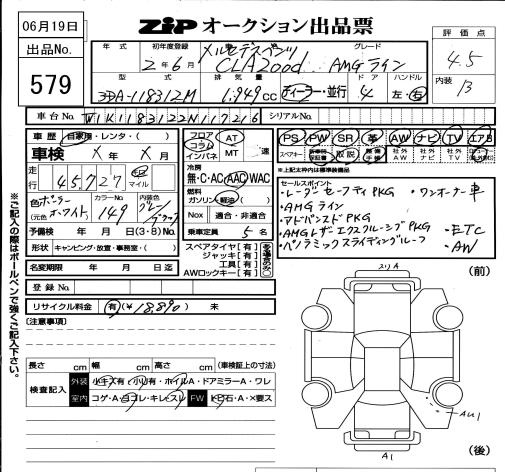 06月19日
ZIP オークション出品票
出品No.
579
年 式 初年度登録 グレード
メルセデスベンツ
2年6月 CLA200d AMGライン
型 式 排 気 量 ド ア ハンドル
3DA-118312M 1,949 CC ディーラー・並行 4 左・右
評 価 点
4.5
内装
B
車 台 No. W1K1183122N117216 シリアルNo.
車 歴 自家用・レンタ・( )
車検 X 年 X 月
走行 45,727 キロ マイル
外色 ポーラーホワイト (元色 ) カラーNo. 149 内装色
予備検 年 月 日(3・8)No.
形状 キャンピング・放置・事務室・( )
名変期限 年 月 日迄
登 録 No.
リサイクル料金 有(¥18,890) 未
フロア コラム インパネ AT MT 速
冷房
無・C・AC・AAC・WAC
燃料
ガソリン・軽油・( )
Nox 適合・非適合
乗車定員 5 名
スペアタイヤ [ 有 ]
ジャッキ [ 有 ]
工具 [ 有 ]
AWロックキー [ 有 ]
PS PW SR 革 AW ナビ TV エアB
スペアキー 取説 社外AW 社外ナビ 社外TV
※上記太枠内は標準装備品
セールスポイント
・レーダーセーフティPKG ・ワンオーナー車
・AMGライン
・アドバンスドPKG
・AMGレザーエクスクルーシブPKG ・ETC
・パノラミックスライディングルーフ ・AW
[注意事項]
長さ cm 幅 cm 高さ cm (車検証上の寸法)
検査記入 外装 小キズ有・小凹有・ホイルA・ドアミラーA・ワレ
室内 コゲ・A・ヨゴレ・キレ・スレ FW トビ石・A・X要ス
(前)
AU1
A1
(後)
※ご記入の際はボールペンで強くご記入下さい。